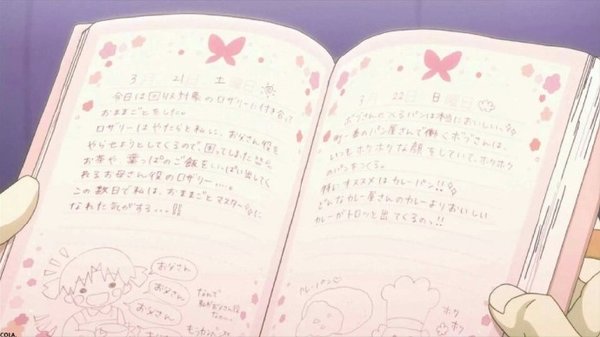 3月 21日 土曜日
今日は困リス対象のロザリーに付き合って
おままごとをした。
ロザリーはやたらと私に、お父さん役を
やらせようとしてくるので、困ってしまった
お茶や、葉っぱのご飯をいっぱい出してく
れるお母さん役のロザリー…。
この数日で私は、おままごとマスターに
なれた気がする…!!
お父さん
お父さん
お父さん
なんで
3月 22日 日曜日
ボブさんの パンは本当においしい。
町一番のパン屋さんで働くボブさんは、
いつもホクホクな顔をしていて、ホクホク
のパンをつくる。
特にオススメはカレーパン!!
どんなカレー屋さんのカレーよりおいしい
カレーがトロッと出てくるの、!!
カレーパン
ホク
ホク
COLA.